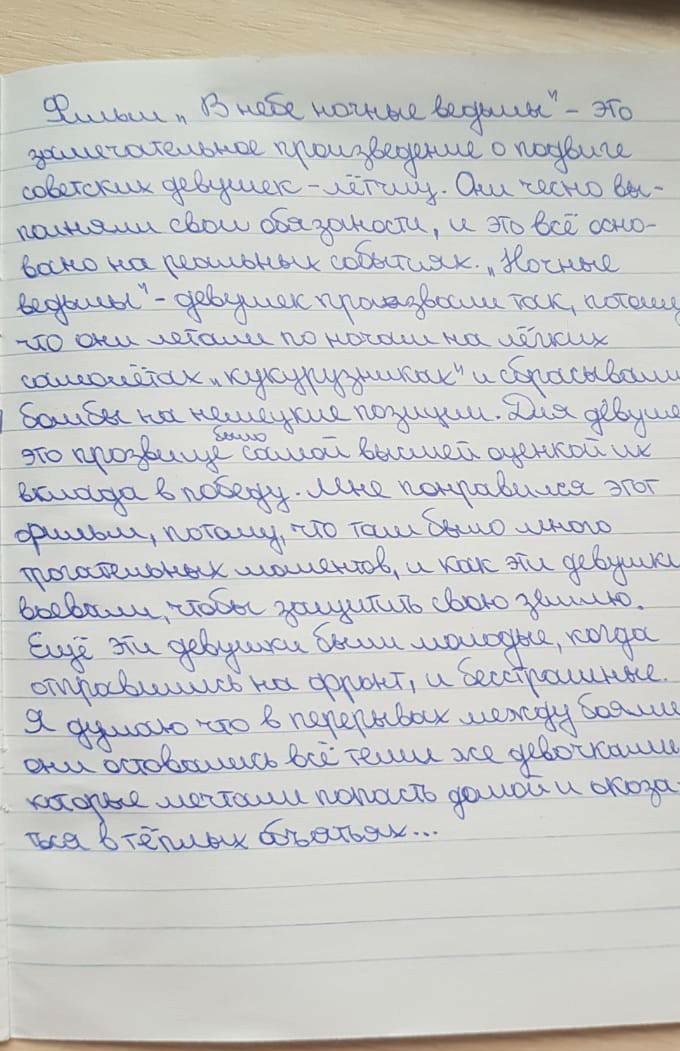 Фильм „В небе ночные ведьмы" – это
замечательное произведение о подвиге
советских девушек-лётчиц. Они чесно вы-
полняли свои обязаности, и это всё осно-
вано на реальных событиях. „Ночные
ведьмы" – девушек прозвали так, потому
что они летали по ночам на лёгких
самолётах „кукурузниках" и сбрасывали
бомбы на немецкие позиции. Для девуше
это прозвище было самой высшей оценкой их
вклада в победу. Мне понравился этот
фильм, потому, что там было много
трогательных моментов, и как эти девушки
воевали, чтобы защитить свою землю.
Ещё эти девушки были молодые, когда
отправились на фронт, и бесстрашные.
Я думаю что в перерывах между боями
они оставались всё теми же девочками
которые мечтали попасть домой и окоза
ться в тёплых объятьях...